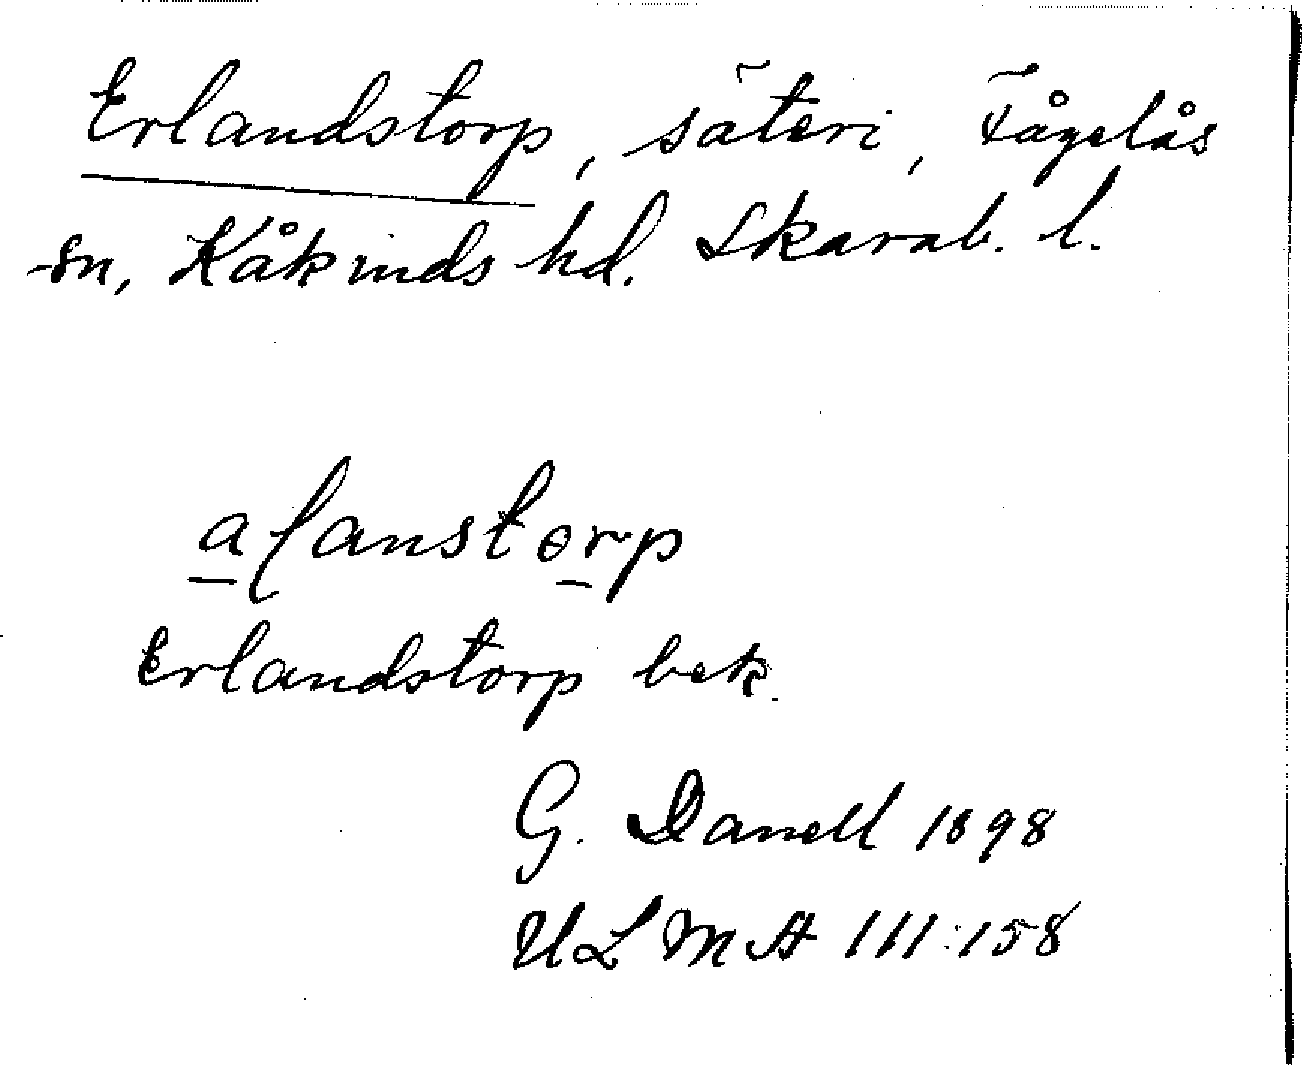 Erlandstorp, säteri, Fågelås
sn, Kåkinds hd. Skarab. l.
a̲ɭanstɵ̲rp
Erlandstorp bek.
G. Danell 1898
ULMA 111:158